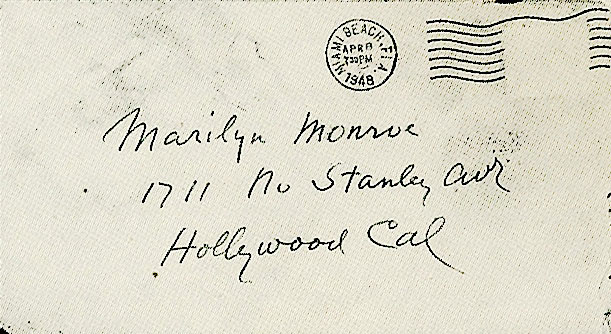 MIAMI BEACH, FLA.
APR 8
7 30 PM
1948
Marilyn Monroe
1711 No Stanley Ave
Hollywood Cal